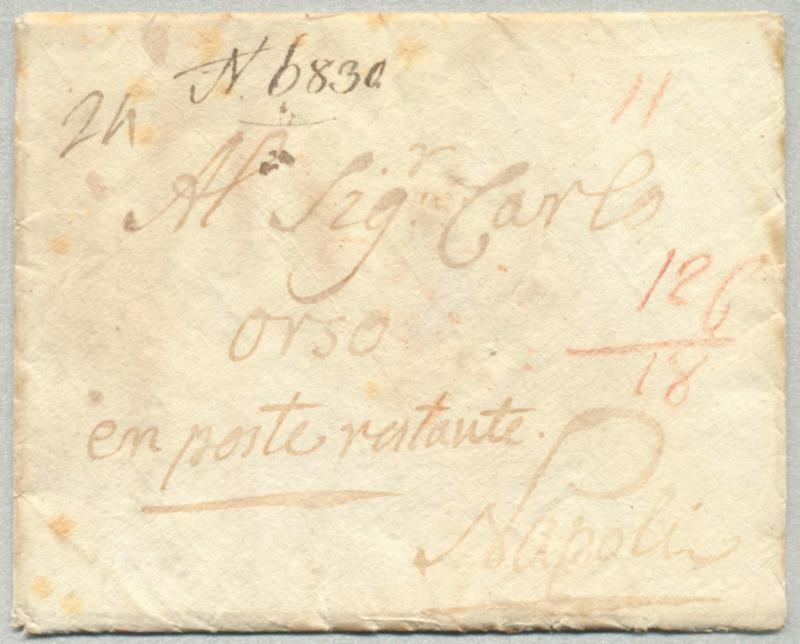 N. 6830
24
11
Al Sigr. Carlo
orso
126
18
en poste restante.
Napoli